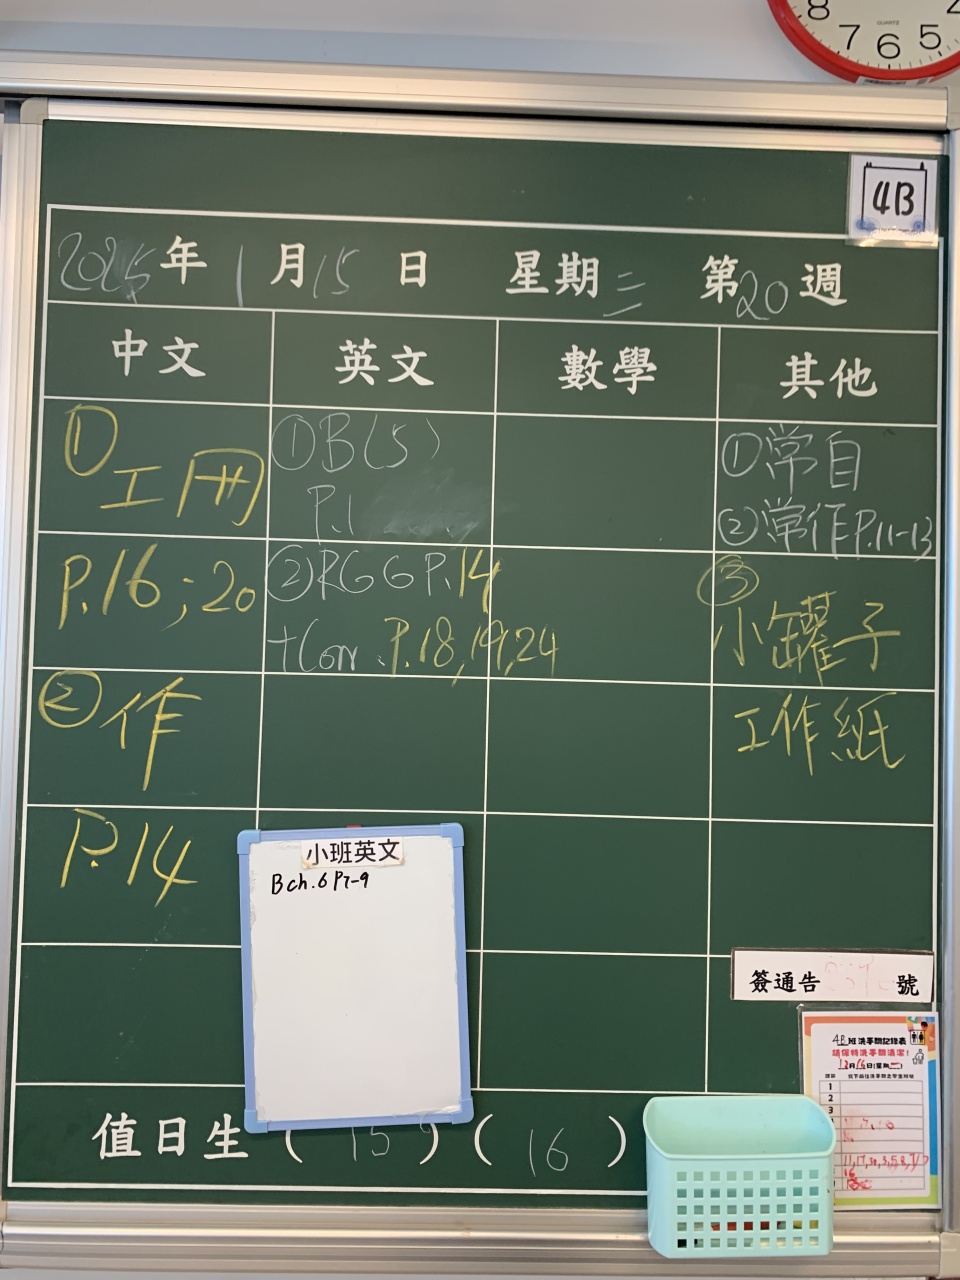 8 7 6 5 4
QUARTZ
4B
2025年 1月15日 星期三 第20週
中文 英文 數學 其他
①工冊
P.16;20
②作
P.14
①B(5)
P.1
②RGG P.14
+Corr. P.18,19,24
①常自
②常作P.11-13
③小罐子
工作紙
小班英文
B ch.6 P7-9
簽通告 號
4B班洗手間記錄表
請保持洗手間清潔!
12月16日(星期二)
1
2
3
值日生 (15) (16)